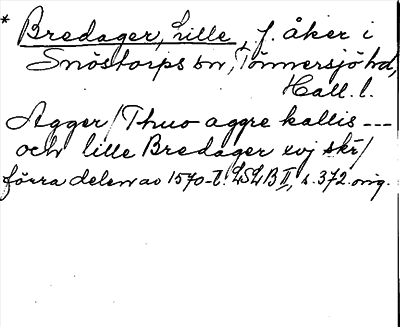 * Bredager, Lille, f. åker i
Snöstorps sn, Tönnersjö hd,
Hall. l.
Agger/Thuo aggre kallis ---
och lille Bredager xvj skr/
förra delen av 1570-t. LSLB II, s. 372. orig.